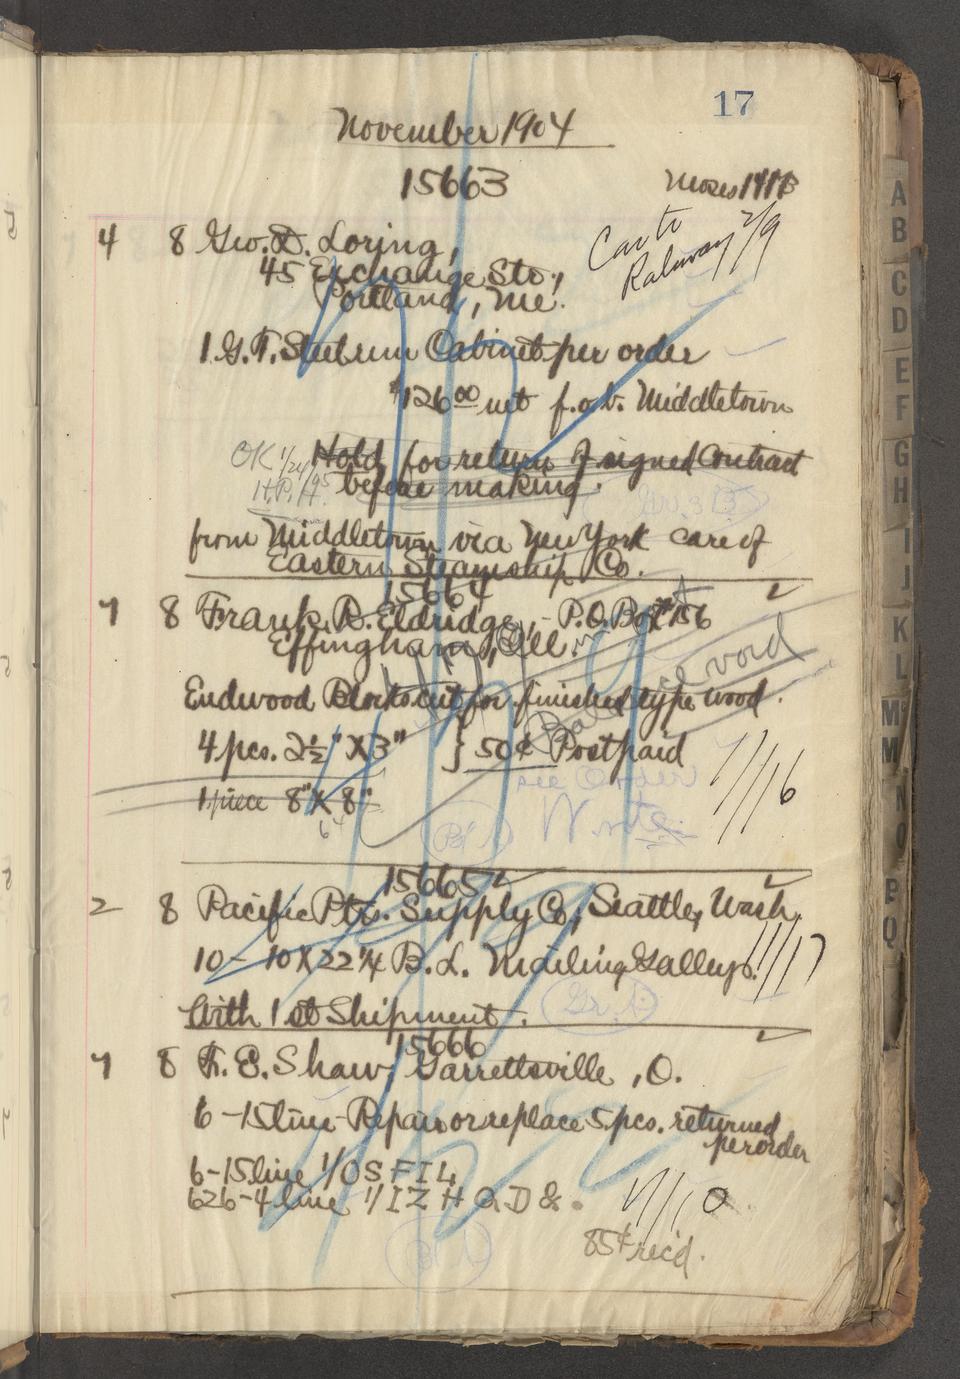 17
November 1904
15663
Moses 1417B
Carto
Railway 2/9
4 8 Geo. D. Loring,
45 Exchange Sts.,
Portland, Me.
1 G.T. Cabinet per order
$126 00 net f.o.b. Middletown
OK 1/24/05
H.P.H.
Hold for return of signed Contract
before making.
from Middletown via New York care of
Eastern Steamship Co.
15664
7 8 Frank B. Eldridge, - P.O. Box #156
Effingham, Ill.
Balance void
Endwood Blocks cut for finished type wood.
4 pcs. 2½" X 3" } 50¢ Postpaid
see Order
1 piece 8" X 8"
Write
11/16
15665
2 8 Pacific Ptrs. Supply Co., Seattle, Wash.
10 - 10 X 22 1/4 B. L. Mailing Galleys.
11/17
With 1st Shipment.
Gr. A.
15666
7 8 F. E. Shaw, Garrettsville, O.
6 - 15 line - Repair or replace 5 pcs. returned
per order
6 - 15 line 1/O S F I L
626 - 4 line 1/I Z H Q D &.
11/10
85¢ rec'd.
A
B
C
D
E
F
G
H
I
J
K
L
Mc
M
N
O
P
Q